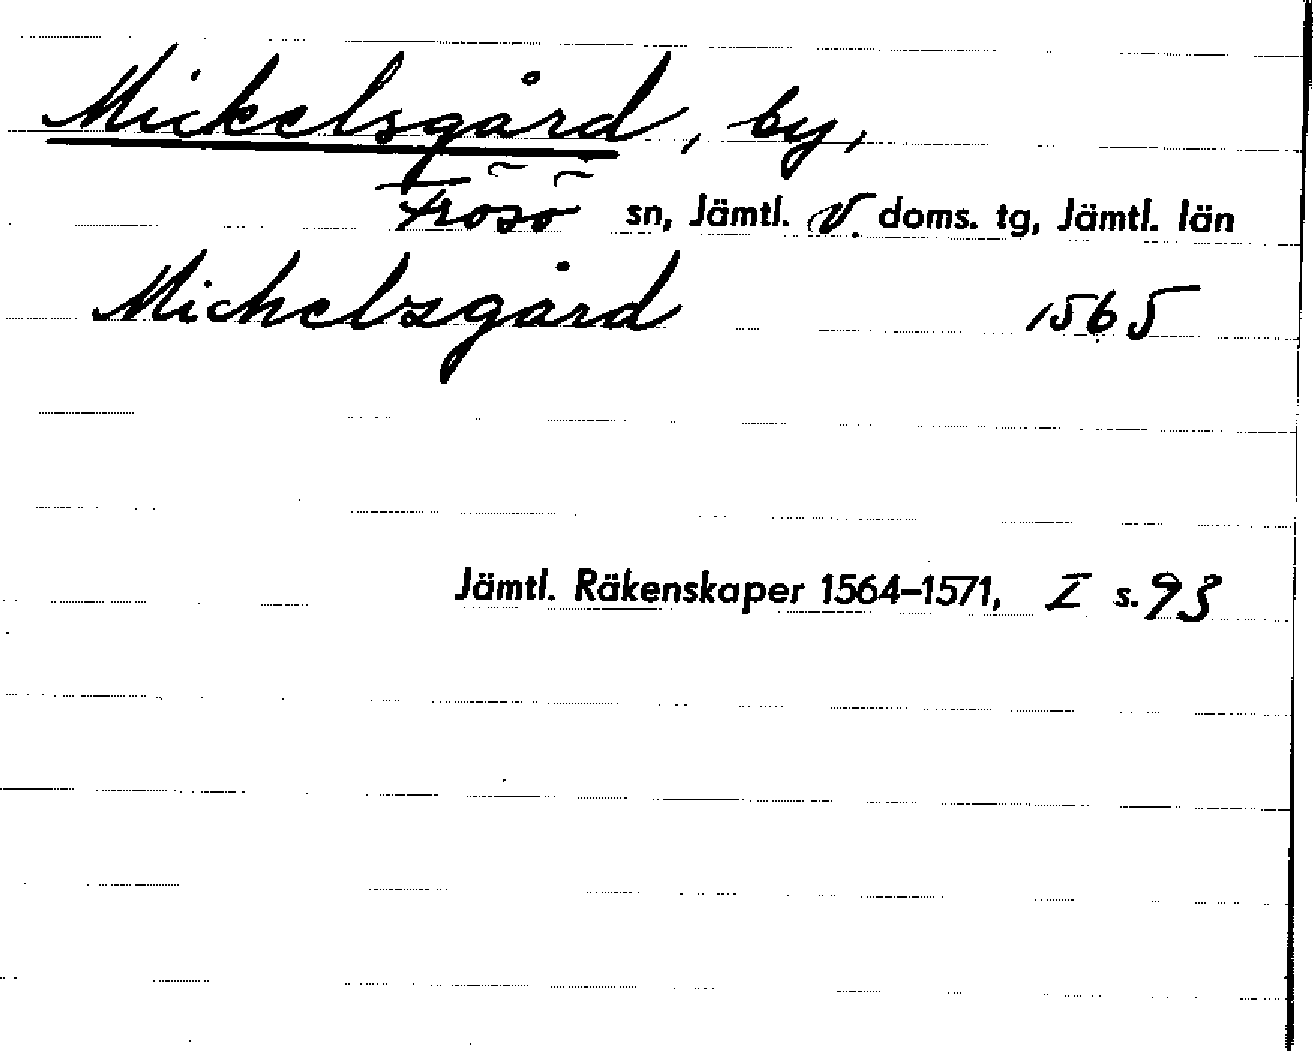 Mickelsgård, by,
Frösö sn, Jämtl. V. doms. tg, Jämtl. län
Michelsgård 1565
Jämtl. Räkenskaper 1564–1571, I s. 93